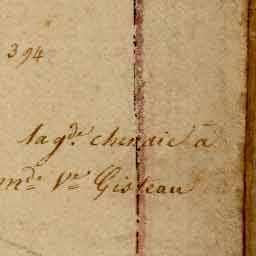 394
la gde. chenaie à
md. Ve. Gisteau